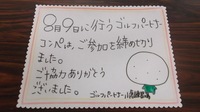 8月9日に行うゴルフパートナー
コンペは、ご参加を締め切り
ました。
ご協力ありがとう
ございました。
ゴルフパートナー